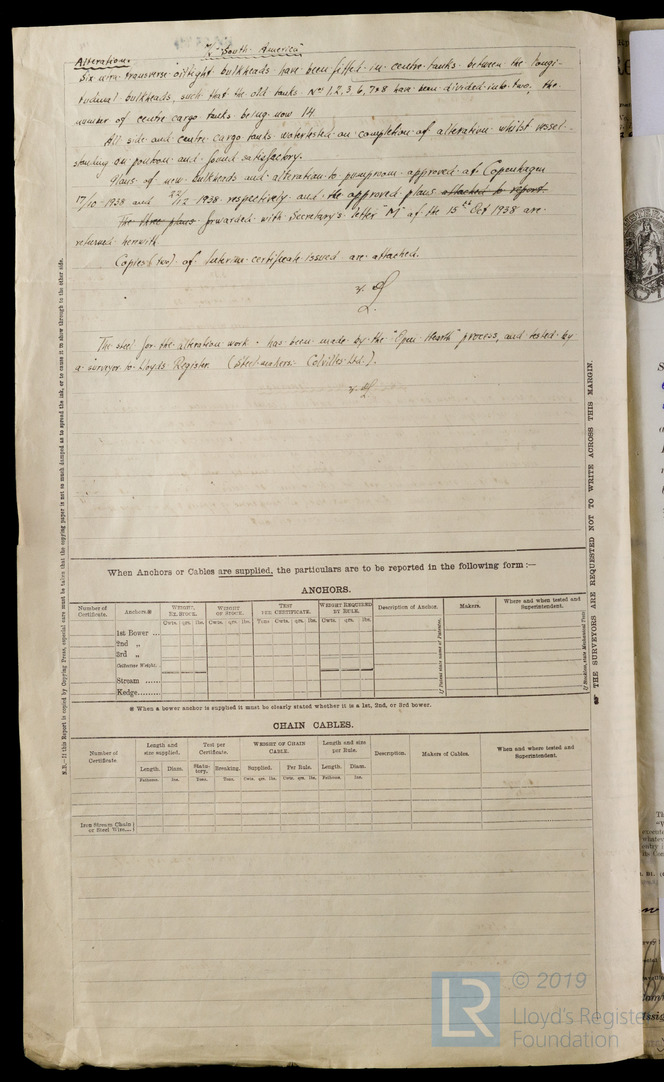 "South America"
Alterations
Six new transverse oiltight bulkheads have been fitted in centre tanks between the longi-
tudinal bulkheads, such that the old tanks Nos 1, 2, 3, 6, 7 & 8 have been divided into two, the
number of centre cargo tanks being now 14
All side and centre cargo tanks watertested on completion of alteration whilst vessel
standing on pontoon and found satisfactory.
Plans of new bulkheads and alteration to pumproom approved at Copenhagen
17/10 1938 and 22/12 1938 respectively and the approved plans attached to report
The three plans forwarded with Secretary's letter "M" of the 15th Oct 1938 are
returned herewith
Copies (two) of Interim certificate issued are attached.
The steel for the alteration work has been made by the "Open Hearth" process, and tested by
a surveyor to Lloyds Register. (Steelmakers: Colvilles Ltd.).
When Anchors or Cables are supplied, the particulars are to be reported in the following form :—
ANCHORS.
Number of Certificate. Anchors.* WEIGHT, EX. STOCK. WEIGHT OF STOCK. TEST PER CERTIFICATE. WEIGHT REQUIRED BY RULE. Description of Anchor. Makers. Where and when tested and Superintendent.
Cwts. qrs. lbs. Cwts. qrs. lbs. Tons Cwts. qrs. lbs. Cwts. qrs. lbs.
1st Bower ...
2nd „
3rd „
Collective Weight.
Stream ......
Kedge........
If Patent state name of Patentee.
If Stockless, state Mechanical Test.
* When a bower anchor is supplied it must be clearly stated whether it is a 1st, 2nd, or 3rd bower.
CHAIN CABLES.
Number of Certificate. Length and size supplied. Test per Certificate. WEIGHT OF CHAIN CABLE. Length and size per Rule. Description. Makers of Cables. When and where tested and Superintendent.
Length. Diam. Statutory. Breaking. Supplied. Per Rule. Length. Diam.
Fathoms. Ins. Tons. Tons. Cwts. qrs. lbs. Cwts. qrs. lbs. Fathoms. Ins.
Iron Stream Chain or Steel Wire....
N.B.—If this Report is copied by Copying Press, especial care must be taken that the copying paper is not so much damped as to spread the ink, or to cause it to show through to the other side.
THE SURVEYORS ARE REQUESTED NOT TO WRITE ACROSS THIS MARGIN.
LR
© 2019
Lloyd's Register
Foundation